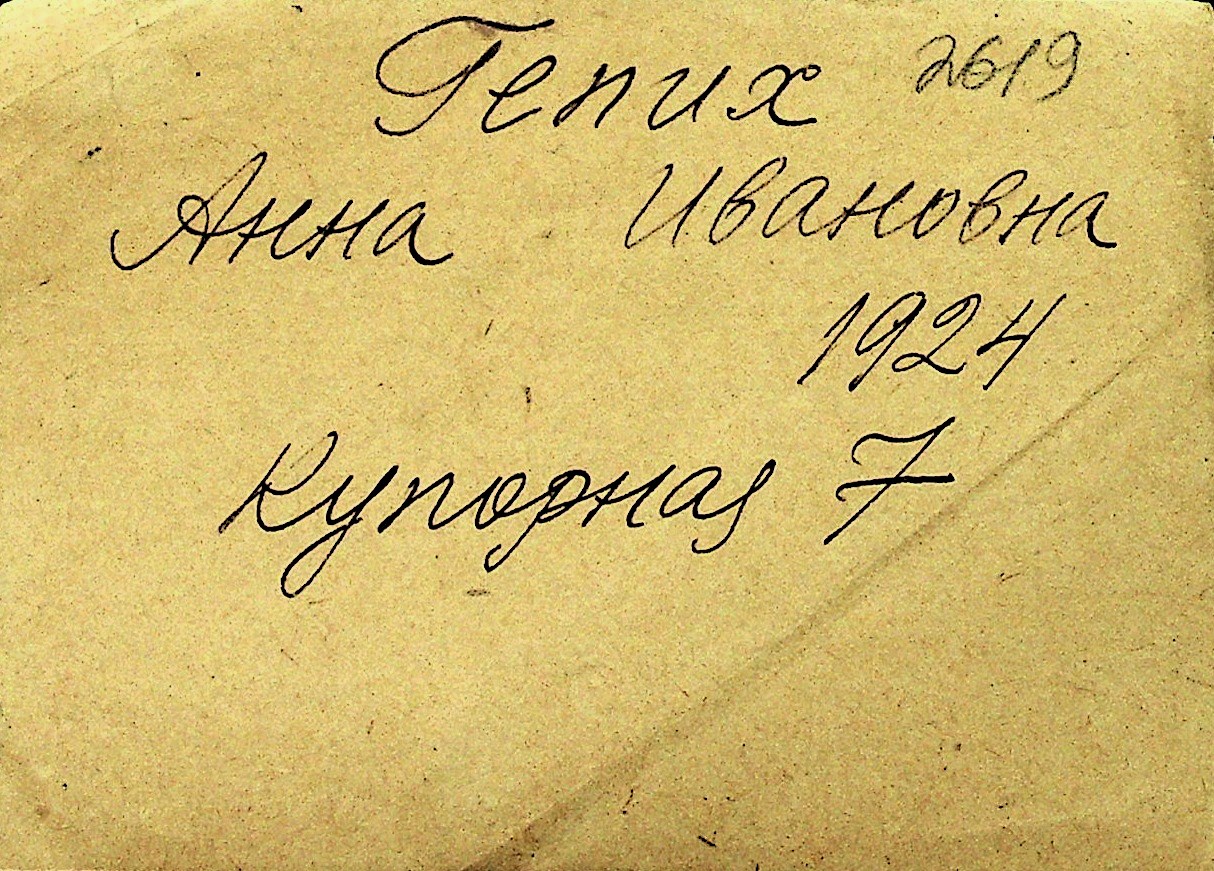 Гепих 2619
Анна Ивановна
1924
Купорная 7